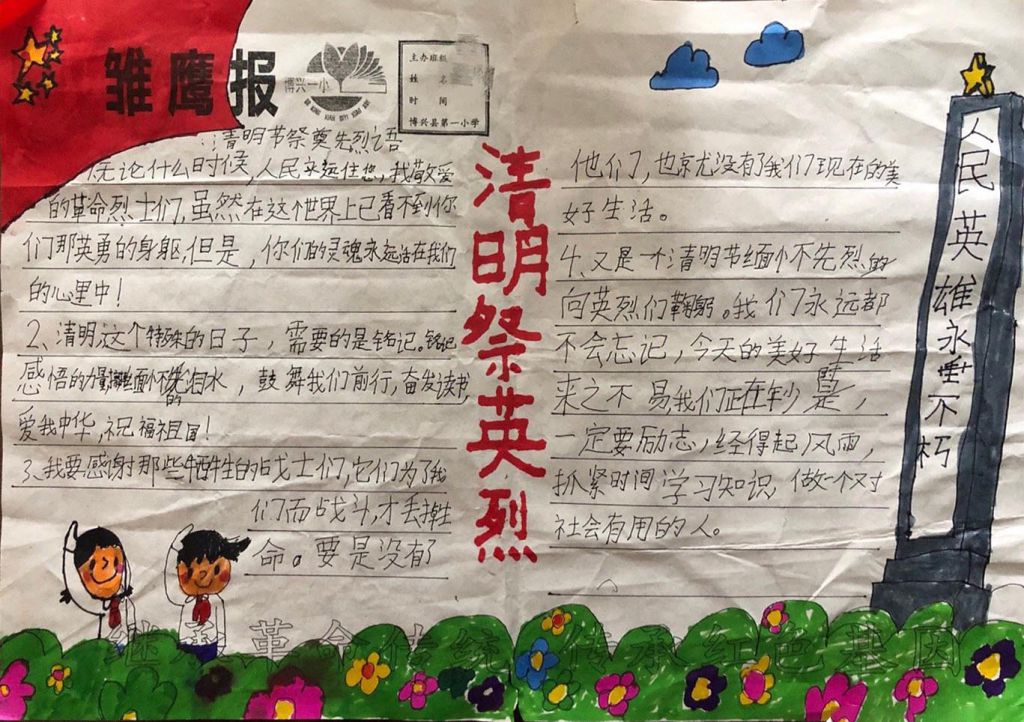 雏鹰报
博兴一小
主办班级
姓名
时间
博兴县第一小学
清明节祭奠先烈之语
无论什么时候,人民永远住想,我敬爱
的革命烈士们,虽然在这个世界上已看不到你
们那英勇的身躯,但是,你们的灵魂永远活在我们
的心里中!
2、清明,这个特殊的日子,需要的是铭记。铭记
感悟的力量,缅怀的泪水,鼓舞我们前行,奋发读书,
爱我中华,祝福祖国!
3、我要感谢那些牺牲的战士们,它们为了我
们而战斗,才丢掉生
命。要是没有
清明祭英烈
他们,也就没有了我们现在的美
好生活。
4、又是一个清明节缅怀先烈的
向英烈们鞠躬。我们永远都
不会忘记,今天的美好生活
来之不易,我们正在少时是,
一定要励志,经得起风雨,
抓紧时间学习知识,做一个对
社会有用的人。
人民英雄永垂不朽
继承革命传统 传承红色基因